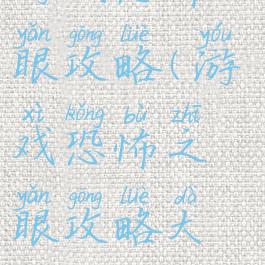 yǎn gōng lüè yóu
眼攻略(游
xì kǒng bù zhī
戏恐怖之
yǎn gōng lüè dà
眼攻略大